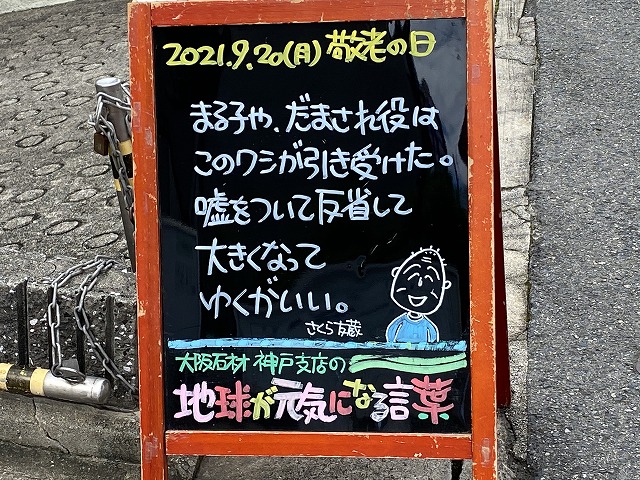 2021.9.20(月)敬老の日
まる子や、だまされ役は
このワシが引き受けた。
嘘をついて反省して
大きくなって
ゆくがいい。
さくら友蔵
大阪石材 神戸支店の
地球が元気になる言葉